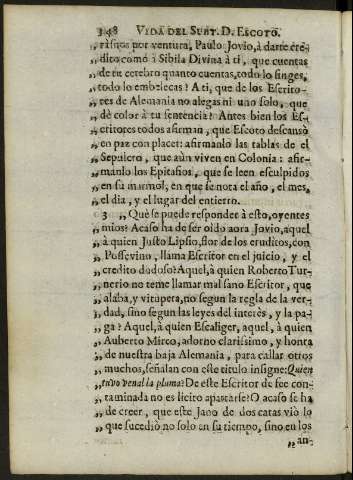 348 VIDA DEL SUBT. D. ESCOTO.
„ ràsnos por ventura, Paulo Jovio, à darte cre-
„ dito comò à Sibila Divina à ti, que cuentas
„ de tu cerebro quanto cuentas, todo lo finges,
„ todo lo embelecas? A ti, que de los Escrito-
„ res de Alemania no alegas ni uno solo, que
„ dè color à tu sentencia? Antes bien los Es-
„ critores todos afirman, que Escoto descansò
„ en paz con placer: afirmanlo las tablas de el
„ Sepulcro, que aùn viven en Colonia: afir-
„ manlo los Epitafios, que se leen esculpidos
„ en su marmol, en que se nota el año, el mes,
„ el dia, y el lugar del entierro.
3 „ Què se puede responder à esto, oyentes
„ mios? Acaso ha de ser oìdo aora Jovio, aquel
„ à quien Justo Lipsio, flor de los eruditos, con
„ Possevino, llama Escritor en el juicio, y el
„ credito dudoso? Aquel, à quien Roberto Tur-
„ nerio no teme llamar mal sano Escritor, que
„ alaba, y vitupera, no segun la regla de la ver-
„ dad, sino segun las leyes del interès, y la pa-
„ ga? Aquel, à quien Escaliger, aquel, à quien
„ Auberto Mireo, adorno clarissimo, y honra
„ de nuestra baja Alemania, para callar otros
„ muchos, señalan con este titulo insigne: Quien
„ tuvo venal la pluma? De este Escritor de fee con-
„ taminada no es licito apartarse? O acaso se ha
„ de creer, que este Jano de dos caras viò lo
„ que sucediò no solo en su tiempo, sino en los
„ an-